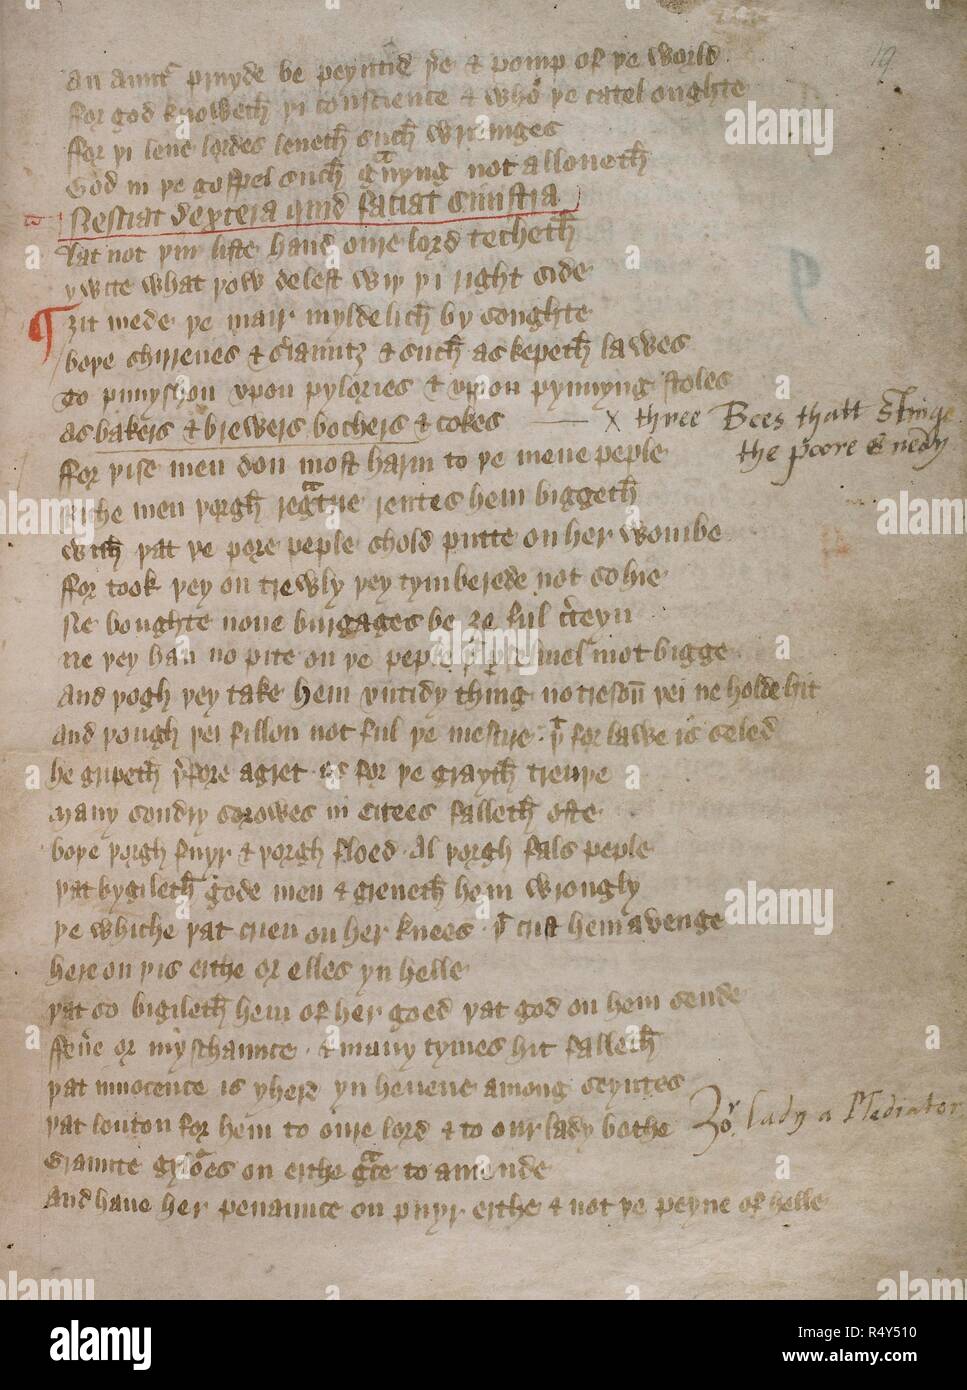 19
an aunter pruyde be peynted þere & pomp of þe world
for god knoweth þi conscience & who þe catel oughte
ffor þi leue lordes leueth such writinges
God in þe gospel such grauyng not alloueth
Nesciat dextera quid faciat sinistra
Lat not þin lifte hand oure lord techeth
ywite what þow delest wiþ þi right side
ȝit mede þe mair myldelich by soughte
boþe shirreues & seriauntz & such as kepeth lawes
To punyshon vpon pylories & vpon pynnyng stoles
as bakers & brewers bochers & cokes
x three Bees thatt Stinge
the poore & nedy
ffor þise men don most harm to þe mene peple
Riche men þorgh regratrie rentes hem biggeth
With þat þe pore peple shold putte on her wombe
ffor took þey on trewly þey tymberede not so hie
Ne boughte none burgages be ȝe ful certeyn
ne þey han no pite on þe peple þat parselmel mot bigge
And þogh þey take hem vntidy thing no treson þei ne holde hit
and þough þei fillon not ful þe mesure þat for lawe is seled
he gripeth þerfore a gret as for þe grayth treuþe
Many sondry sorowes in citees falleth ofte
boþe þorgh fuyr & þorgh floed al þorgh fals peple
þat bygileth gode men & greueth hem wrongly
þe whiche þat crien on her knees þat crist hem avenge
here on þis erthe or elles yn helle
þat so bigileth hem of her goed þat god on hem sende
ffeuere or myschaunce & many tymes hit falleth
þat innocence is yherd yn heuene among seyntes
þat louton for hem to oure lord & to our lady bothe
Our lady a Mediator
Graunte gyloures on erthe grace to amende
And haue her penaunce on puyr erthe & not þe peyne of helle
alamy
alamy
Image ID: R4Y510
www.alamy.com